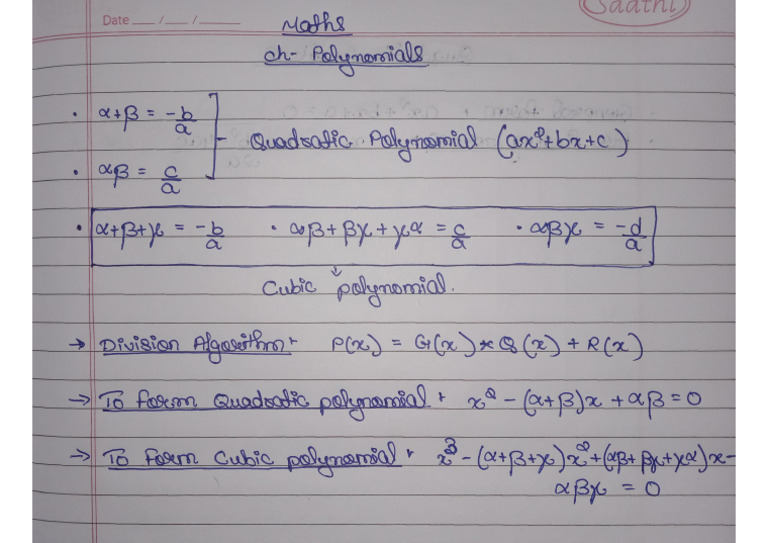 Saathi
Date ___ / ___ / ___
Maths
Ch- Polynomials
• α+β = -b/a
• αβ = c/a
- Quadratic Polynomial (ax²+bx+c)
• α+β+γ = -b/a • αβ+βγ+γα = c/a • αβγ = -d/a
Cubic polynomial.
→ Division Algorithm P(x) = G(x) * Q(x) + R(x)
→ To form Quadratic polynomial x² - (α+β)x + αβ = 0
→ To form Cubic polynomial x³ - (α+β+γ)x² + (αβ+βγ+γα)x -
αβγ = 0